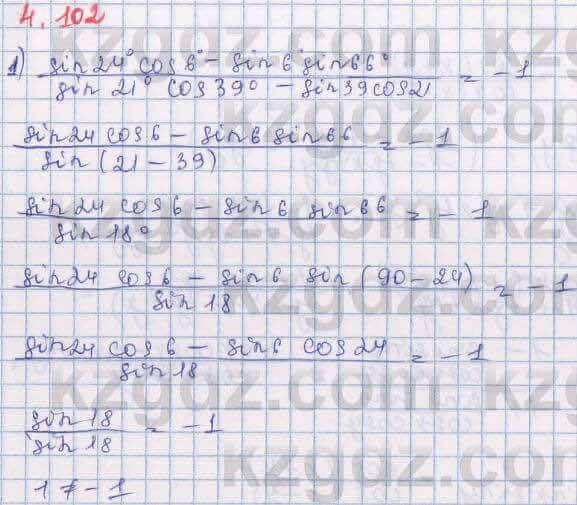 4.102
1) sin24° cos6° - sin6 sin66° / sin21° cos39° - sin39cos21 = -1
sin24 cos6 - sin6 sin66 / sin(21-39) = -1
sin24 cos6 - sin6 sin66 / sin18° = -1
sin24 cos6 - sin6 sin(90-24) / sin18 = -1
sin24 cos6 - sin6 cos24 / sin18 = -1
sin18 / sin18 = -1
1≠-1
kzgdz.com kzgdz.com